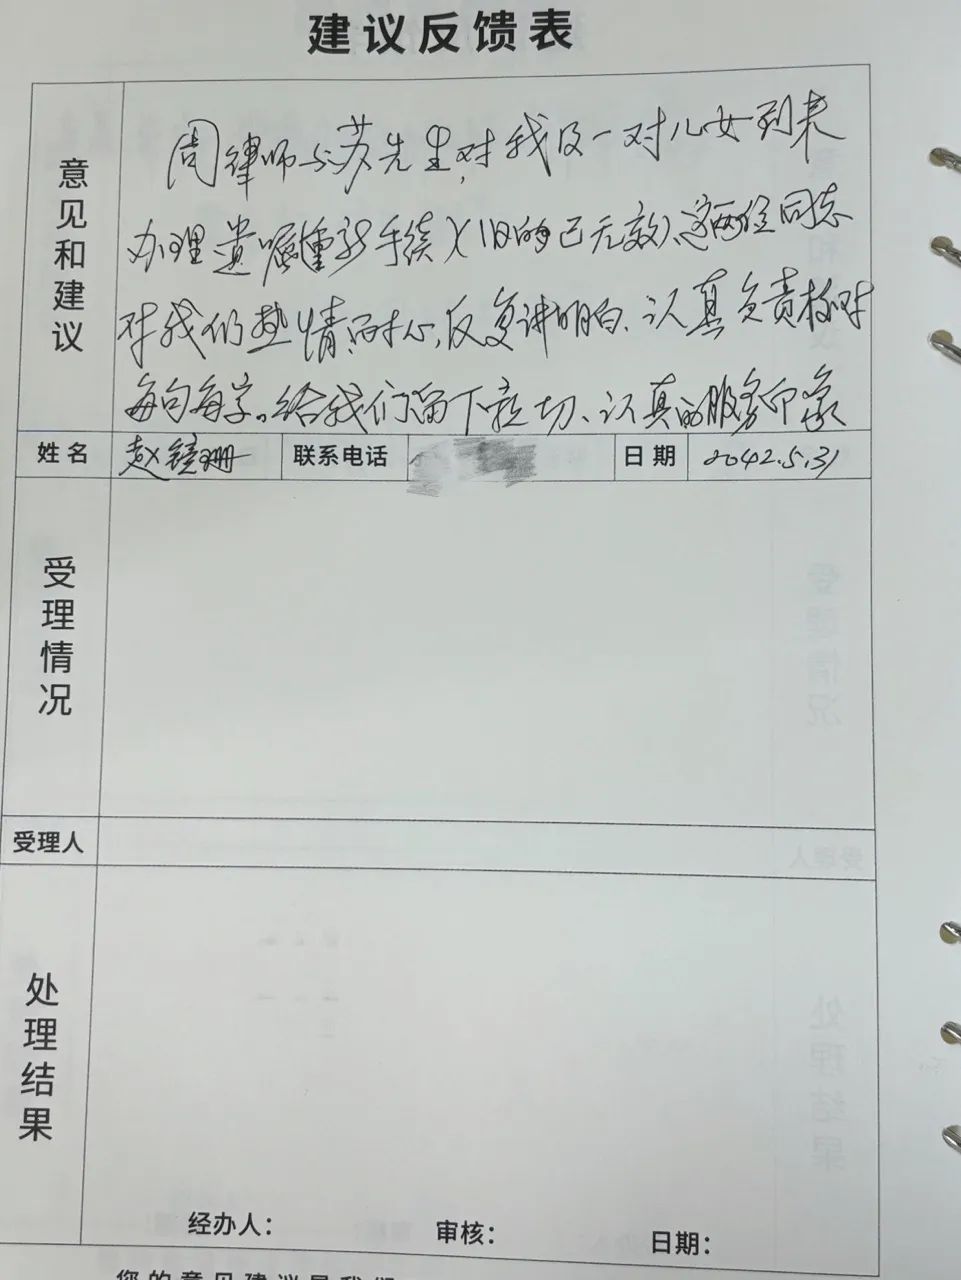 建议反馈表
意见和建议
周律师与苏先生,对我及一对儿女到表
办理遗嘱重新手续(旧的已无效)、这两位同志
对我们热情、耐心,反复讲明白、认真负责校对
每句每字。给我们留下亲切、认真的服务印象
姓名 赵镜珊 联系电话 日期 2042.5.31
受理情况
受理人
处理结果
经办人: 审核: 日期:
您的意见建议是我们